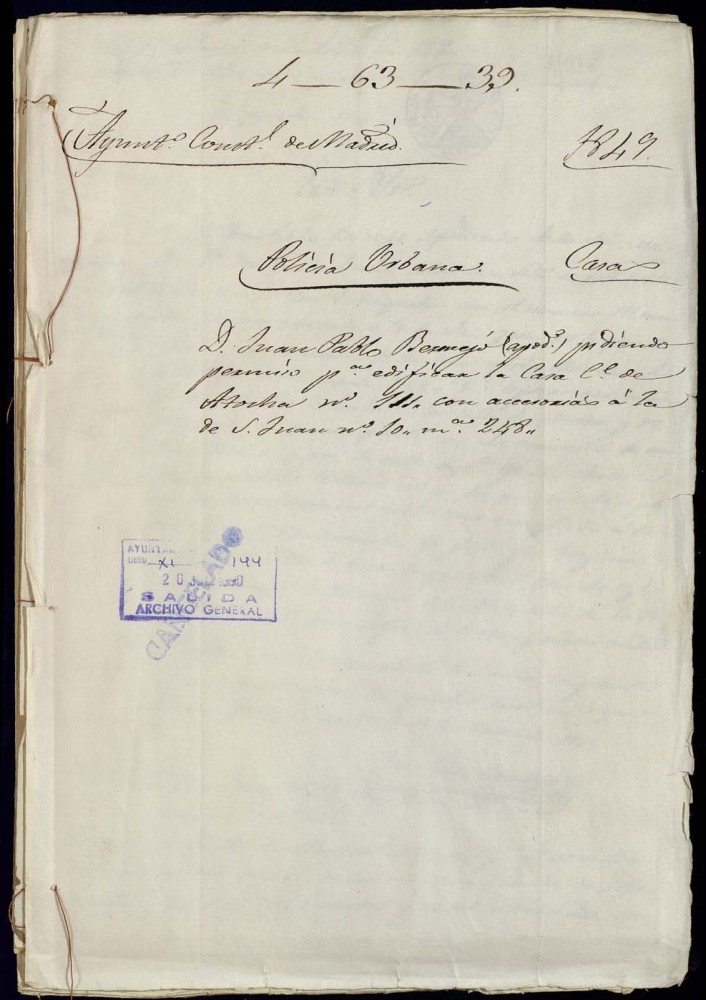 4 — 63 — 39.
Ayunt.º Const.l de Madrid.
1849.
Policia Urbana. Casas
D. Juan Pablo Bermejo (apod.º) pidiendo
permiso p.ª edificar la Casa C.e de
Atocha n.º 111. con accesorias á la
de S. Juan n.º 10,, m.na 248,,
AYUNTA
XI 144
20 JU 1990
SALIDA
ARCHIVO GENERAL
CANCELADO